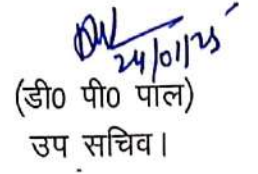 24/01/25
(डी0 पी0 पाल)
उप सचिव।